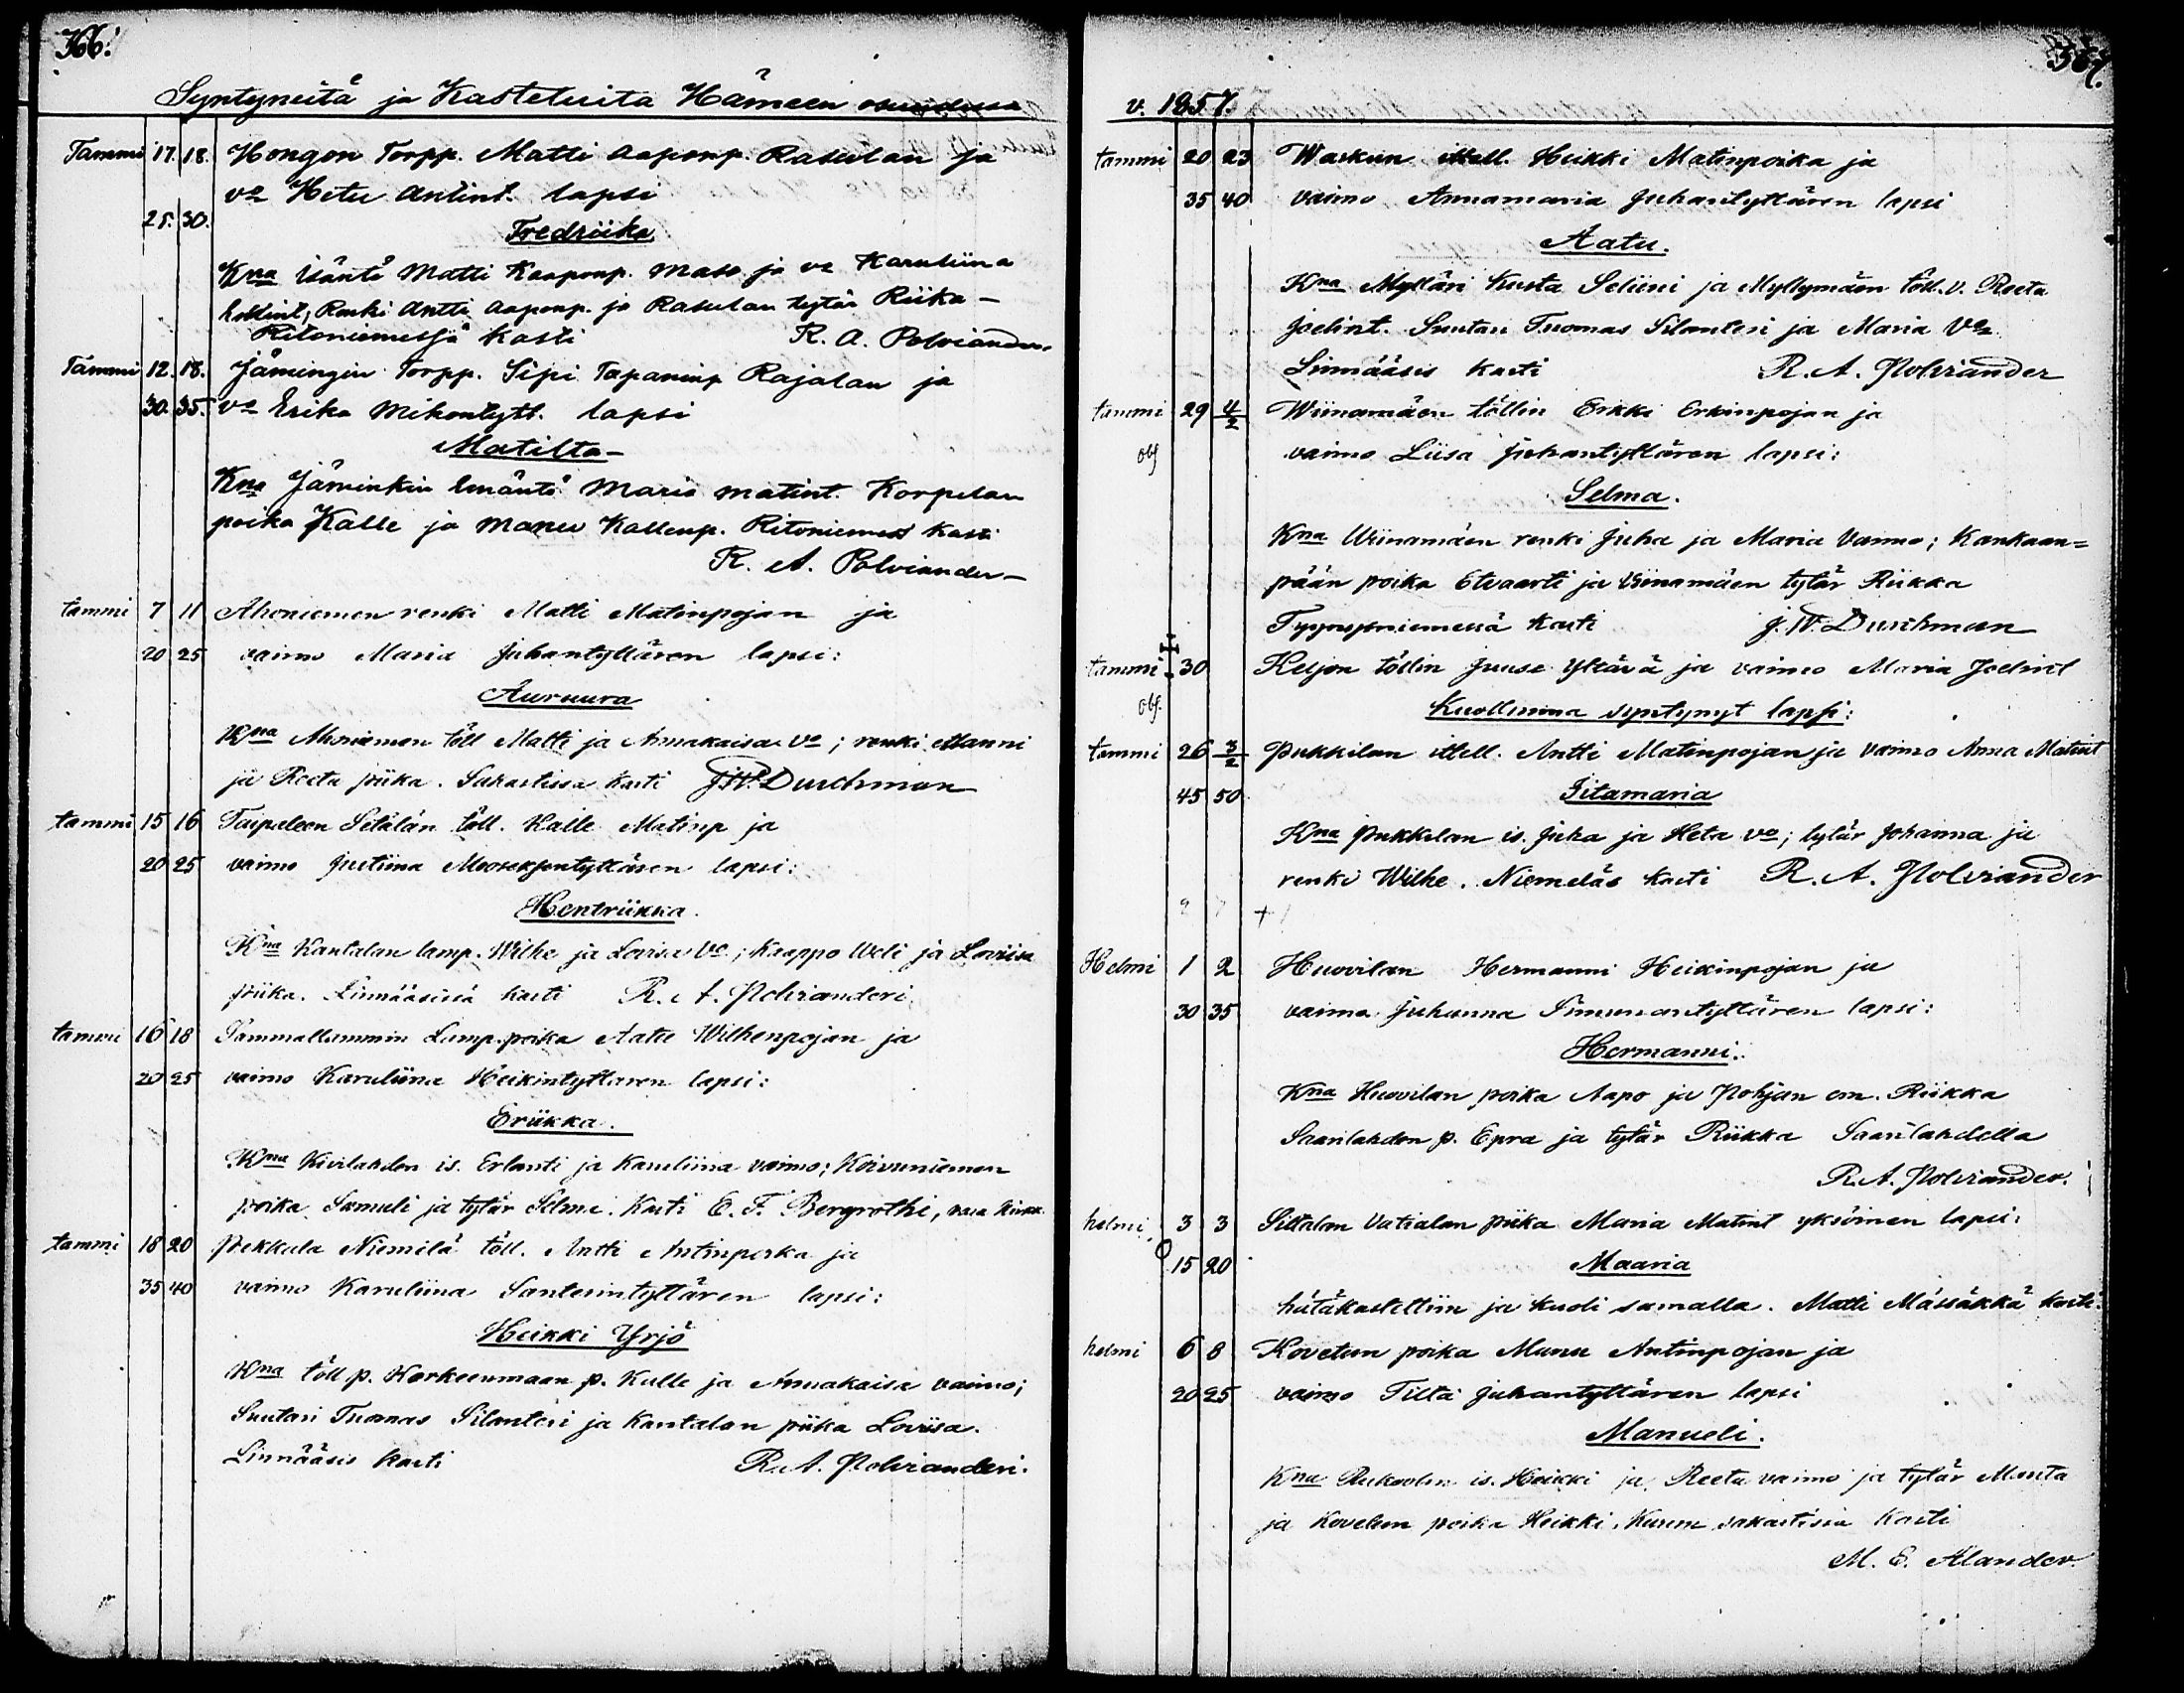 366.
Syntyneitä ja Kastetuita Hämeen osuudessa
Tammi 17. 18. Hongon Torpp. Matti Aaponp. Rasulan ja
va Hetu Antint. lapsi
25. 30.
Fredriika
Kna Isäntä Matti Kaaponp. Maso ja va Karuliina
Renki Antti Aaponp. ja Rasulan tytär Riika –
Ritoniemessä kasti R. A. Polviander.
Tammi 12. 18. Jämingin Torpp. Sipi Tapaninp Rajalan ja
30. 35. va Erika Mikontytt. lapsi
Matilta –
Kna Jäminkin emäntä Maria Matint. Korpelan
poika Kalle ja Maneu Kallenp. Ritoniemes kasti
R. A. Polviander –
tammi 7 11 Ahoniemen renki Matti Matinpojan ja
20 25 vaimo Maria Juhantyttären lapsi:
Auruura
Kna Ahoniemen töll Matti ja Annakaisa va; renki Manni
ja Reeta piika. Sakastissa kasti J. W. Durchman
tammi 15 16 Taipaleen Setälän töll. Kalle Matinp ja
20 25 vaimo Justiina Mooseksentyttären lapsi:
Hentriikka.
Kna Kantalan lamp. Wilhe ja Lovisa va; Kaappo Weli ja Loviisa
piika. Linnääsissä kasti R. A. Polvianderi.
tammi 16 18 Sammallammin Lamp. poika Aatu Wilhenpojan ja
20 25 vaimo Karuliina Heikintyttären lapsi:
Eriikka.
Kna Kivilahden is. Erlanti ja Karuliina vaimo; Koivuniemen
poika Samuli ja tytär Selma. Kasti E. F. Bergrothi,
tammi 18 20 Pekkala Niemilä töll. Antti Antinpoika ja
35 40 vaimo Karuliina Santerintyttären lapsi:
Heikki Yrjö
Kna töll p. Korkeenmaan p. Kalle ja Annakaisa vaimo;
Suutari Tuomas Silanteri ja Kantalan piika Loviisa.
Linnääsis kasti R. A. Polvianderi.
367.
v. 1857.
tammi 20 23 Waskin itsell. Heikki Matinpoika ja
35 40 vaimo Annamaria Juhantyttären lapsi
Aatu.
Kna Mylläri Kusta Seliini ja Myllymäen töll. v. Reeta
Joelint. Suutari Tuomas Silanteri ja Maria va
Linnääsis kasti R. A. Polviander
tammi 29 4/2 Wiinamäen töllin Erkki Erkinpojan ja
obs vaimo Liisa Juhantyttären lapsi:
Selma.
Kna Wiinamäen renki Juha ja Maria vaimo; Kankaan=
pään poika Etvaarti ja Viinamäen tytär Riikka
Tyyrynniemessä kasti J. W. Durchman
tammi 30 Keljon töllin Juuse Yltävä ja vaimo Maria Joelint
obs. Kuolluina syntynyt lapsi:
tammi 26 3/2 Pukkilan itsell. Antti Matinpojan ja vaimo Anna Matint
45 50 Iitamaria
Kna Pukkilan is. Juha ja Heta va; tytär Johanna ja
renki Wilhe. Niemeläs kasti R. A. Polviander
Helmi 1 2 Huovilan Hermanni Heikinpojan ja
30 35 vaimo Juhanna Simunantyttären lapsi:
Hermanni.
Kna Huovilan poika Aapo ja Pohjan em. Riikka
Saarilahden p. Epra ja tytär Riikka Saarilahdella
R. A. Polviander.
helmi 3 3 Siltalan Vatialan piika Maria Matint yksöinen lapsi:
15 20 Maaria
hätäkastettiin ja kuoli samalla. Matti Mässäkkä kasti.
helmi 6 8 Koveteen poika Manu Antinpojan ja
20 25 vaimo Tilta Juhantyttären lapsi
Manueli.
Kna Rukoolan is. Heikki ja Reeta vaimo ja tytär Manta
ja Koveteen poika Heikki. sakastisia kasti
M. E. Alander.